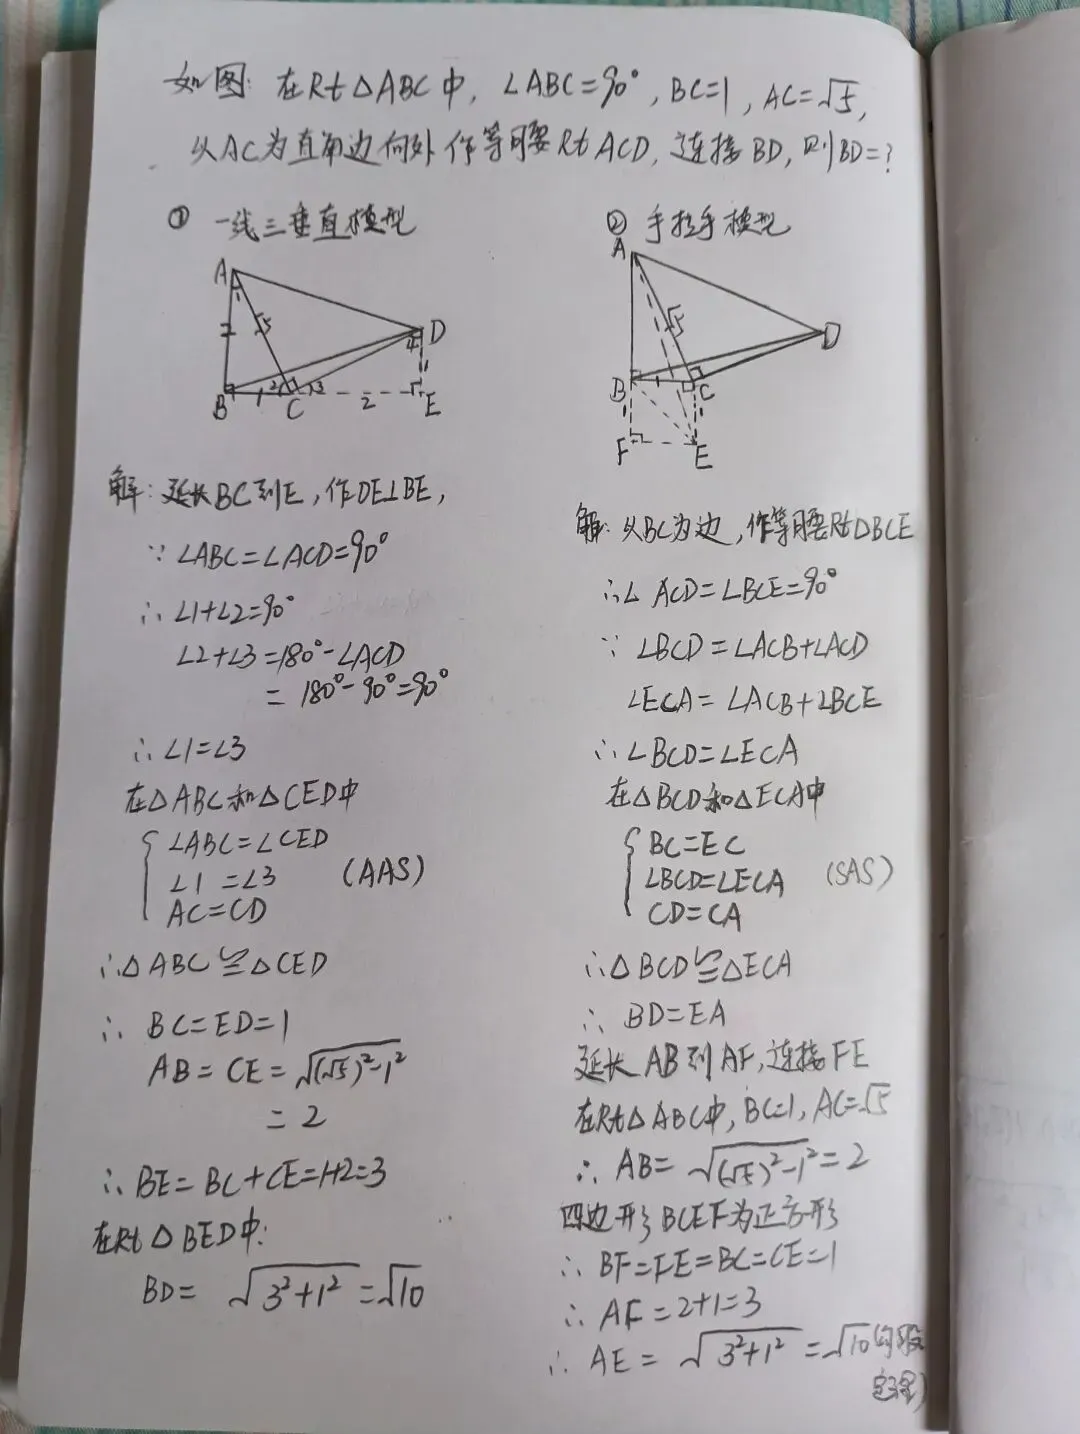 如图: 在Rt△ABC中, ∠ABC=90°, BC=1, AC=√5,
以AC为直角边向外作等腰Rt ACD, 连接BD, 则BD=?
① 一线三垂直模型
A
√5
D
4
1
B
1
2
C
3
2
E
解: 延长BC到E, 作DE⊥BE,
∵ ∠ABC=∠ACD=90°
∴ ∠1+∠2=90°
∠2+∠3=180°-∠ACD
= 180°-90°=90°
∴ ∠1=∠3
在△ABC和△CED中
∠ABC=∠CED
∠1=∠3 (AAS)
AC=CD
∴△ABC≌△CED
∴ BC=ED=1
AB=CE=√((√5)²-1²)
=2
∴ BE=BC+CE=1+2=3
在Rt△BED中:
BD= √(3²+1²)=√10
② 手拉手模型
A
√5
D
B
1
C
1
1
F
E
解: 以BC为边, 作等腰RtDBCE
∴∠ACD=∠BCE=90°
∵ ∠BCD=∠ACB+∠ACD
∠ECA=∠ACB+∠BCE
∴∠BCD=∠ECA
在△BCD和△ECA中
BC=EC
∠BCD=∠ECA (SAS)
CD=CA
∴△BCD≌△ECA
∴ BD=EA
延长AB到AF, 连接FE
在Rt△ABC中, BC=1, AC=√5
∴ AB=√((√5)²-1²)=2
四边形BCEF为正方形
∴ BF=FE=BC=CE=1
∴ AF=2+1=3
∴ AE=√(3²+1²)=√10(勾股
定理)